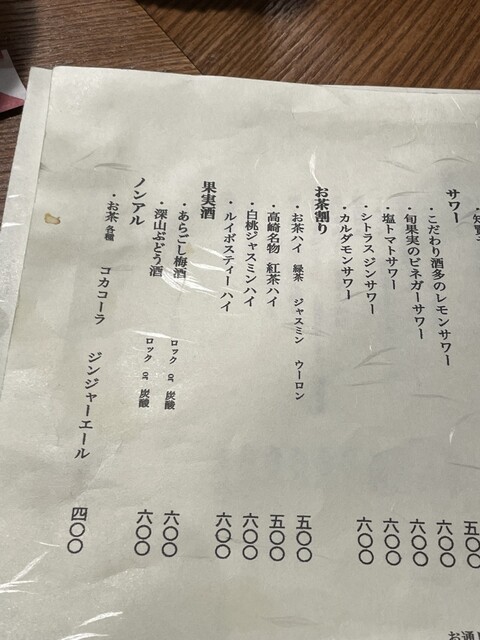 五〇〇
サワー
・こだわり酒多のレモンサワー 六〇〇
・旬果実のビネガーサワー 六〇〇
・塩トマトサワー 六〇〇
・シトラスジンサワー 六〇〇
・カルダモンサワー
お茶割り
・お茶ハイ 緑茶 ジャスミン ウーロン 五〇〇
・高崎名物 紅茶ハイ 五〇〇
・白桃ジャスミンハイ 六〇〇
・ルイボスティーハイ 六〇〇
果実酒
・あらごし梅酒 ロック or 炭酸 六〇〇
・深山ぶどう酒 ロック or 炭酸 六〇〇
ノンアル
・お茶 各種 コカコーラ ジンジャーエール 四〇〇
お通し